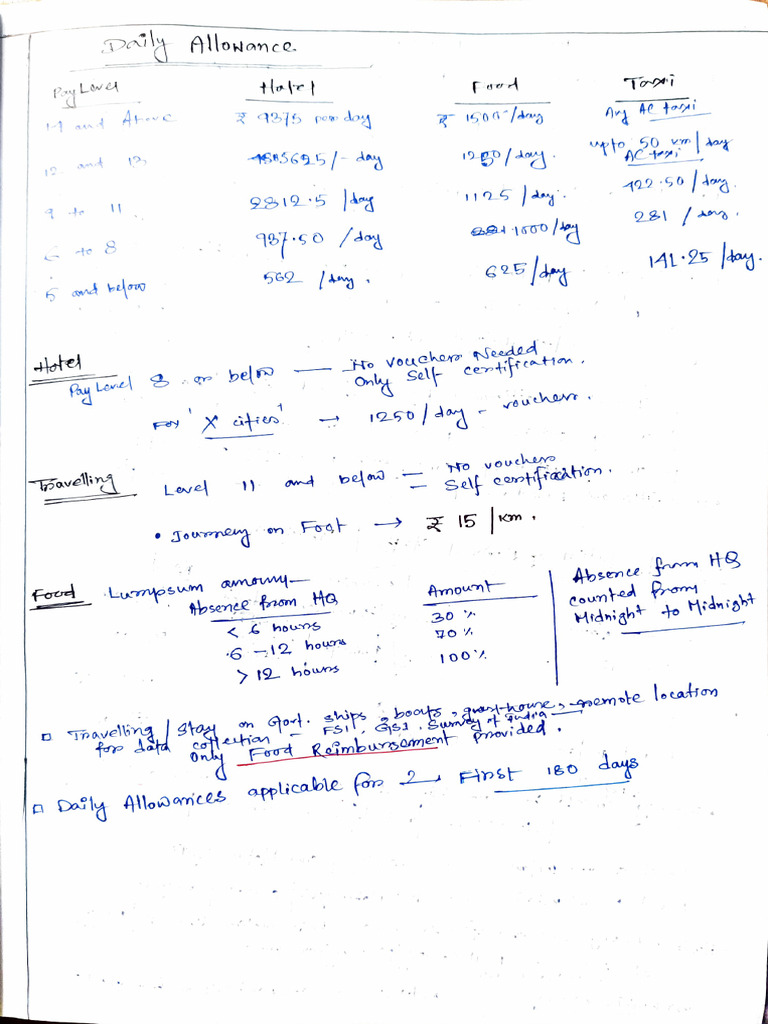 Daily Allowance
Pay Level Hotel Food Taxi
14 and Above ₹ 9375 per day ₹ 1500/day Any AC taxi
12 and 13 5625/- day 1250/day. upto 50 km/day AC taxi
9 to 11 2812.5 /day 1125/day. 422.50/day.
6 to 8 937.50 /day 1000/day 281 /day.
5 and below 562 /day. 625/day 141.25/day.
Hotel
Pay Level 8 or below — No vouchers Needed
Only Self certification.
For 'X' cities' → 1250/day - vouchers.
Travelling Level 11 and below = No vouchers
= Self certification.
• Journey on Foot → ₹ 15 /km.
Food Lumpsum amount—
Absence from HQ Amount
< 6 hours 30%
6 - 12 hours 70%
> 12 hours 100%
Absence from HQ
counted from
Midnight to Midnight
□ Travelling / Stay on Govt. ships, boats, guest house, remote location
for data collection - FSI, GSI, Survey of India
only Food Reimbursement provided.
□ Daily Allowances applicable for First 180 days